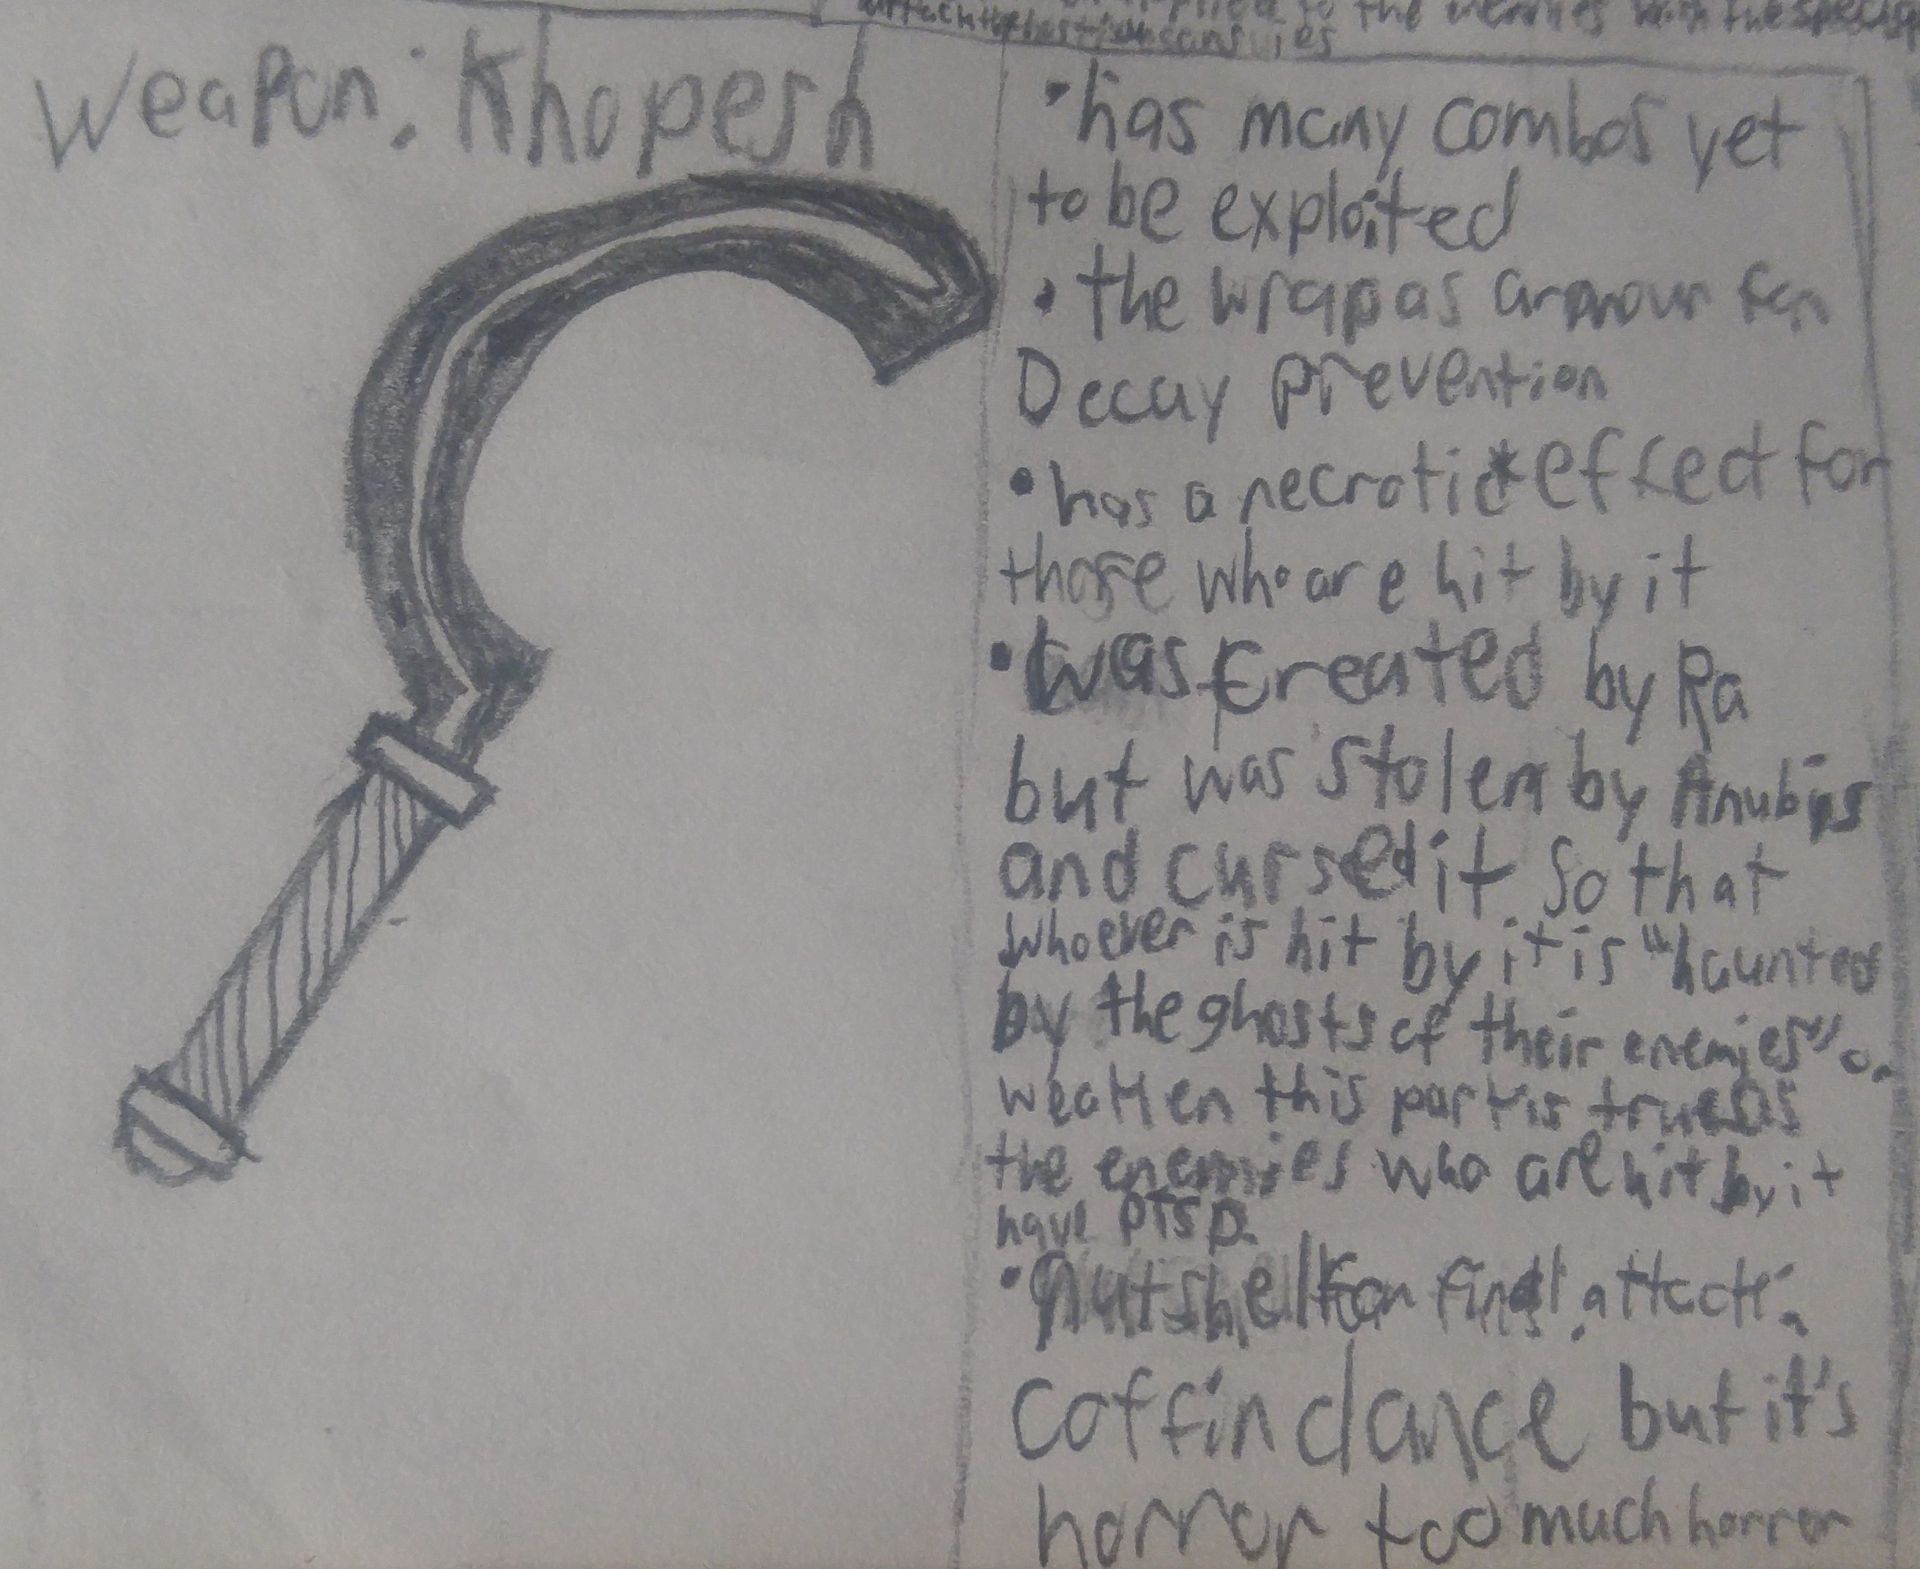 to the enemies with the special
Weapon: Khopesh
• has many combos yet
to be exploited
• the wrap as armour for
Decay prevention
• has a necrotic* effect for
those who are hit by it
• was created by Ra
but was stolen by Anubis
and cursed it so that
whoever is hit by it is "haunted
by the ghosts of their enemies" or
weaken this part is true as
the enemies who are hit by it
have PTSD.
• nutshell for final attack:
coffin dance but it's
horror too much horror